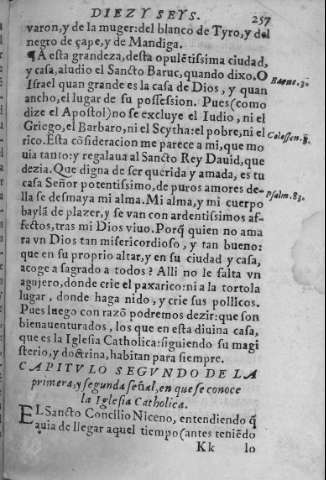 DIEZ Y SEYS.
257
varon, y de la muger: del blanco de Tyro, y del
negro de çape, y de Mandiga.
¶ A esta grandeza, desta opulẽtissima ciudad,
y casa, aludio el Sancto Baruc, quando dixo, O
Baruc. 3.
Israel quan grande es la casa de Dios, y quan
ancho, el lugar de su possession. Pues (como
dize el Apostol) no se excluye el Iudio, ni el
Griego, el Barbaro, ni el Scytha: el pobre, ni el
Colossen.
rico. Esta cõsideracion me parece a mi, que mo
uia tanto: y regalaua al Sancto Rey Dauid, que
dezia. Que digna de ser querida y amada, es tu
casa Señor potentissimo, de puros amores de-
Psalm. 83.
lla se desmaya mi alma. Mi alma, y mi cuerpo
baylã de plazer, y se van con ardentissimos af-
fectos, tras mi Dios viuo. Porq̃ quien no ama
ra vn Dios tan misericordioso, y tan bueno:
que en su proprio altar, y en su ciudad y casa,
acoge a sagrado a todos? Alli no le falta vn
agujero, donde crie el paxarico: ni a la tortola
lugar, donde haga nido, y crie sus pollicos.
Pues luego con razõ podremos dezir: que son
bienauenturados, los que en esta diuina casa,
que es la Iglesia Catholica: siguiendo su magi
sterio, y doctrina, habitan para siempre.
CAPITVLO SEGVNDO DE LA
primera, y segunda señal, en que se conoce
la Iglesia Catholica.
EL Sancto Concilio Niceno, entendiendo q̃
auia de llegar aquel tiempo (antes teniẽdo
Kk lo